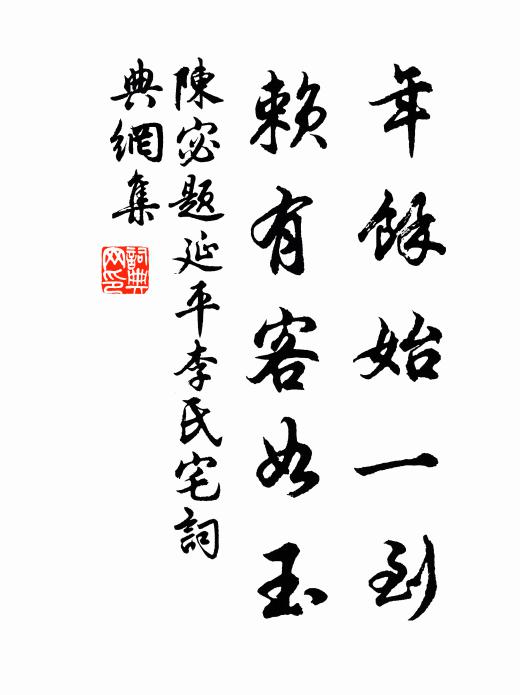 年餘始一到
賴有客如玉
陳宓題延平李氏宅詞
典網集
詞典網印